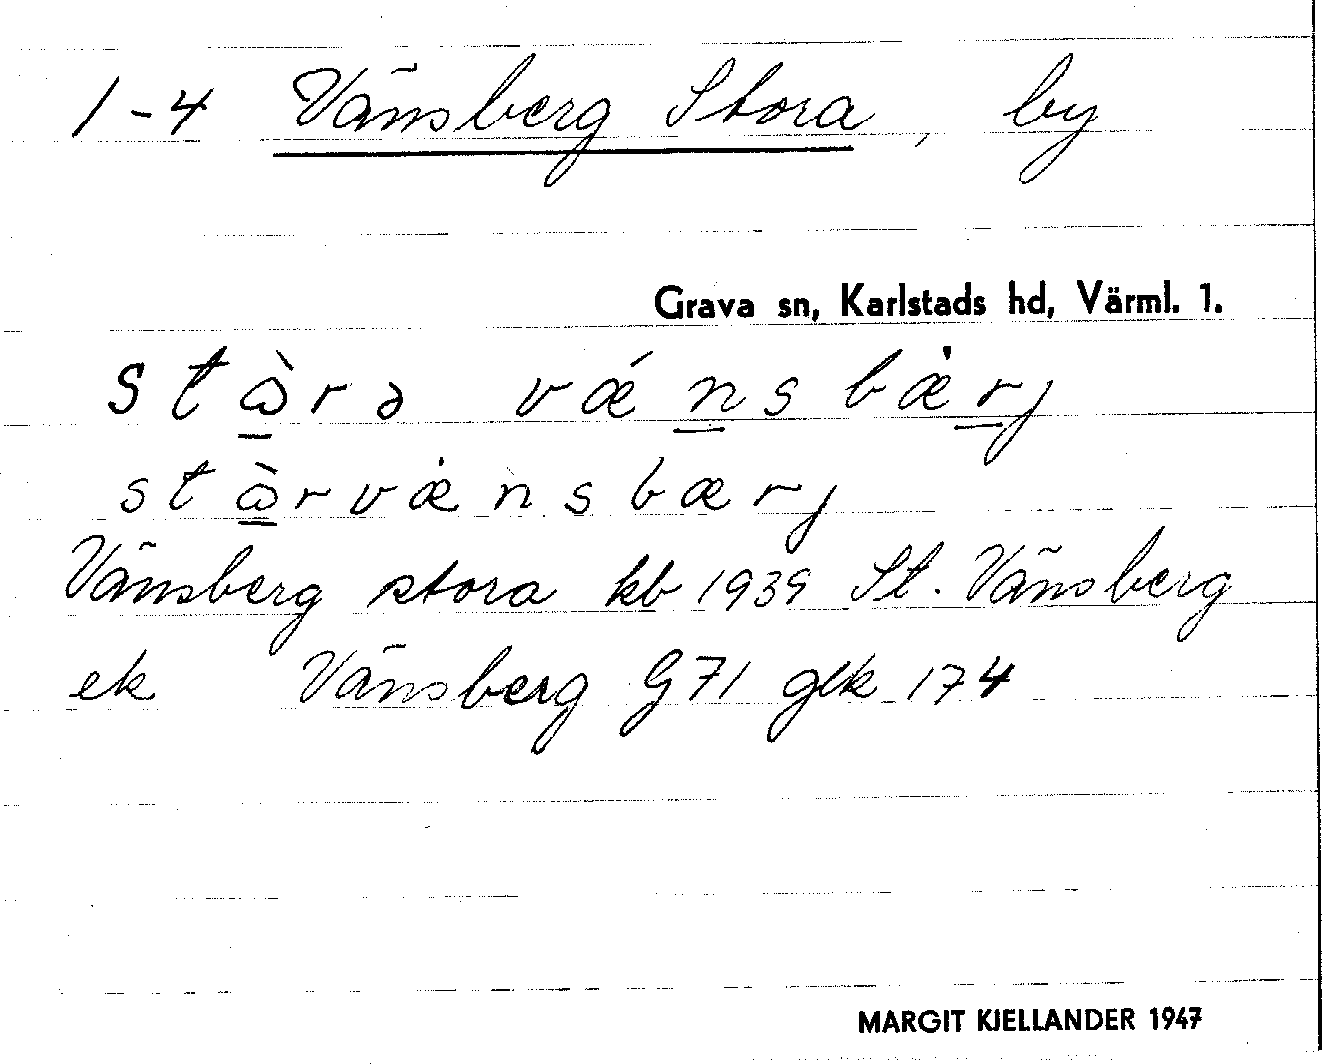 1-4 Vänsberg Stora, by
Grava sn, Karlstads hd, Värml. 1.
stὼ̲rə vǽn̲sbæ̇r̲j
stὼ̲rvæ̇nsbærj
Vänsberg stora kb 1939 St. Vänsberg
ek Vänsberg G71 glk 174
MARGIT KJELLANDER 1947